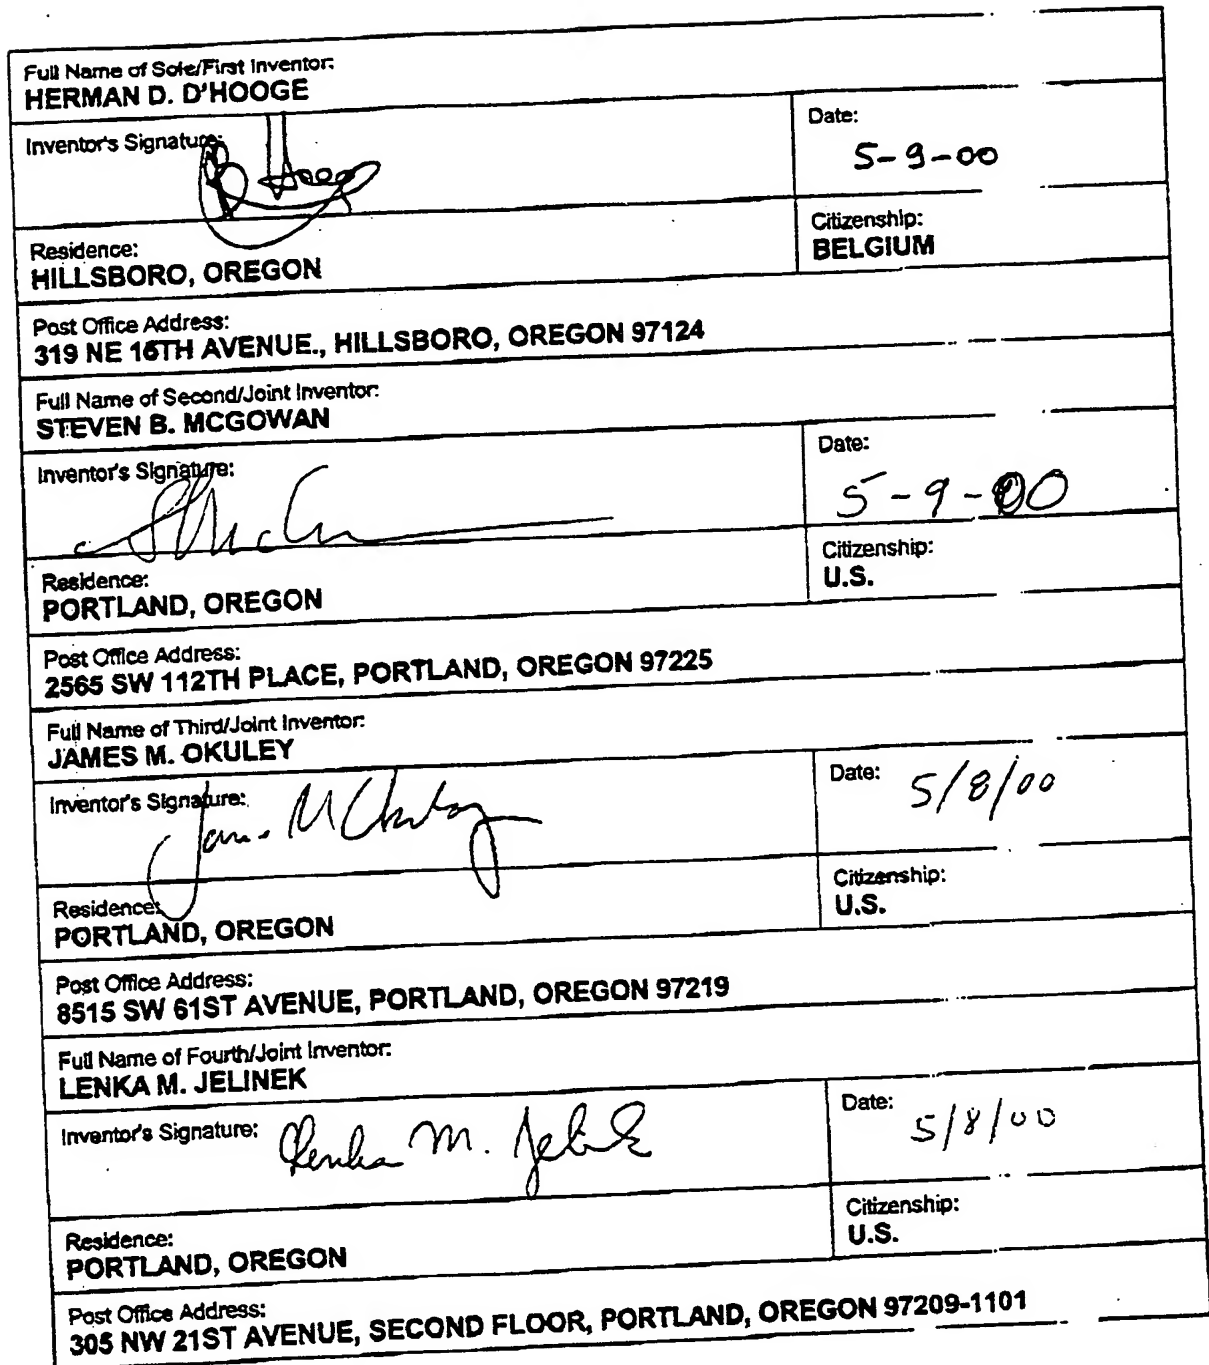 Full Name of Sole/First Inventor:
HERMAN D. D'HOOGE
Inventor's Signature:
Date:
5-9-00
Residence:
HILLSBORO, OREGON
Citizenship:
BELGIUM
Post Office Address:
319 NE 16TH AVENUE., HILLSBORO, OREGON 97124
Full Name of Second/Joint Inventor:
STEVEN B. MCGOWAN
Inventor's Signature:
Date:
5-9-00
Residence:
PORTLAND, OREGON
Citizenship:
U.S.
Post Office Address:
2565 SW 112TH PLACE, PORTLAND, OREGON 97225
Full Name of Third/Joint Inventor:
JAMES M. OKULEY
Inventor's Signature:
James M Okuley
Date:
5/8/00
Residence:
PORTLAND, OREGON
Citizenship:
U.S.
Post Office Address:
8515 SW 61ST AVENUE, PORTLAND, OREGON 97219
Full Name of Fourth/Joint Inventor:
LENKA M. JELINEK
Inventor's Signature:
Lenka M. Jelinek
Date:
5/8/00
Residence:
PORTLAND, OREGON
Citizenship:
U.S.
Post Office Address:
305 NW 21ST AVENUE, SECOND FLOOR, PORTLAND, OREGON 97209-1101